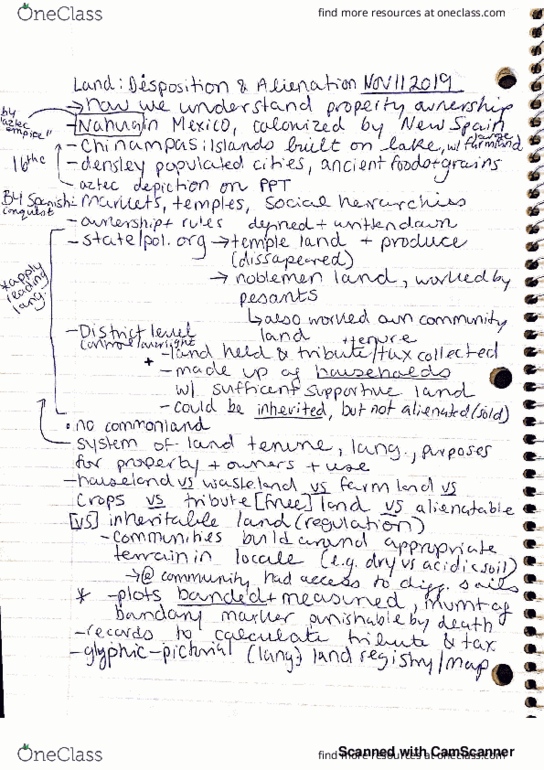 OneClass
find more resources at oneclass.com
Land: Disposition & Alienation NOV 11 2019
→ how we understand property ownership
by "aztec empire"
- Nahua in Mexico, colonized by New Spain
- Chinampas: islands built on lake, w/ large farmland
16th c
- densley populated cities, ancient foods + grains
- aztec depiction on PPT
B4 Spanish conquest
- markets, temples, social heirarchies
- ownership + rules defined + written down
- state/pol. org → temple land + produce
(dissapeared)
*apply reading lang.
→ noblemen land, worked by
pesants
↳ also worked own community
land
- District level
control/oversight
+ - land held & tribute/tax collected
tenure
- made up of households
w/ sufficent supportive land
- could be inherited, but not alienated (sold)
• no commonland
system of land tenure, lang., purposes
for property + owners + use
- houseland vs wasteland vs farm land vs
crops vs tribute [free] land vs alienatable
[vs] inheritable land (regulation)
- communities build around appropriate
terrain in locale (e.g. dry vs acidic soil)
→ @ community had access to diff. soils
* - plots banded + measured, mvmt of
bandary marker punishable by death
- records to calculate tribute & tax
- glyphic-pictorial (lang) land registry/map
OneClass
find more resources at oneclass.com
Scanned with CamScanner